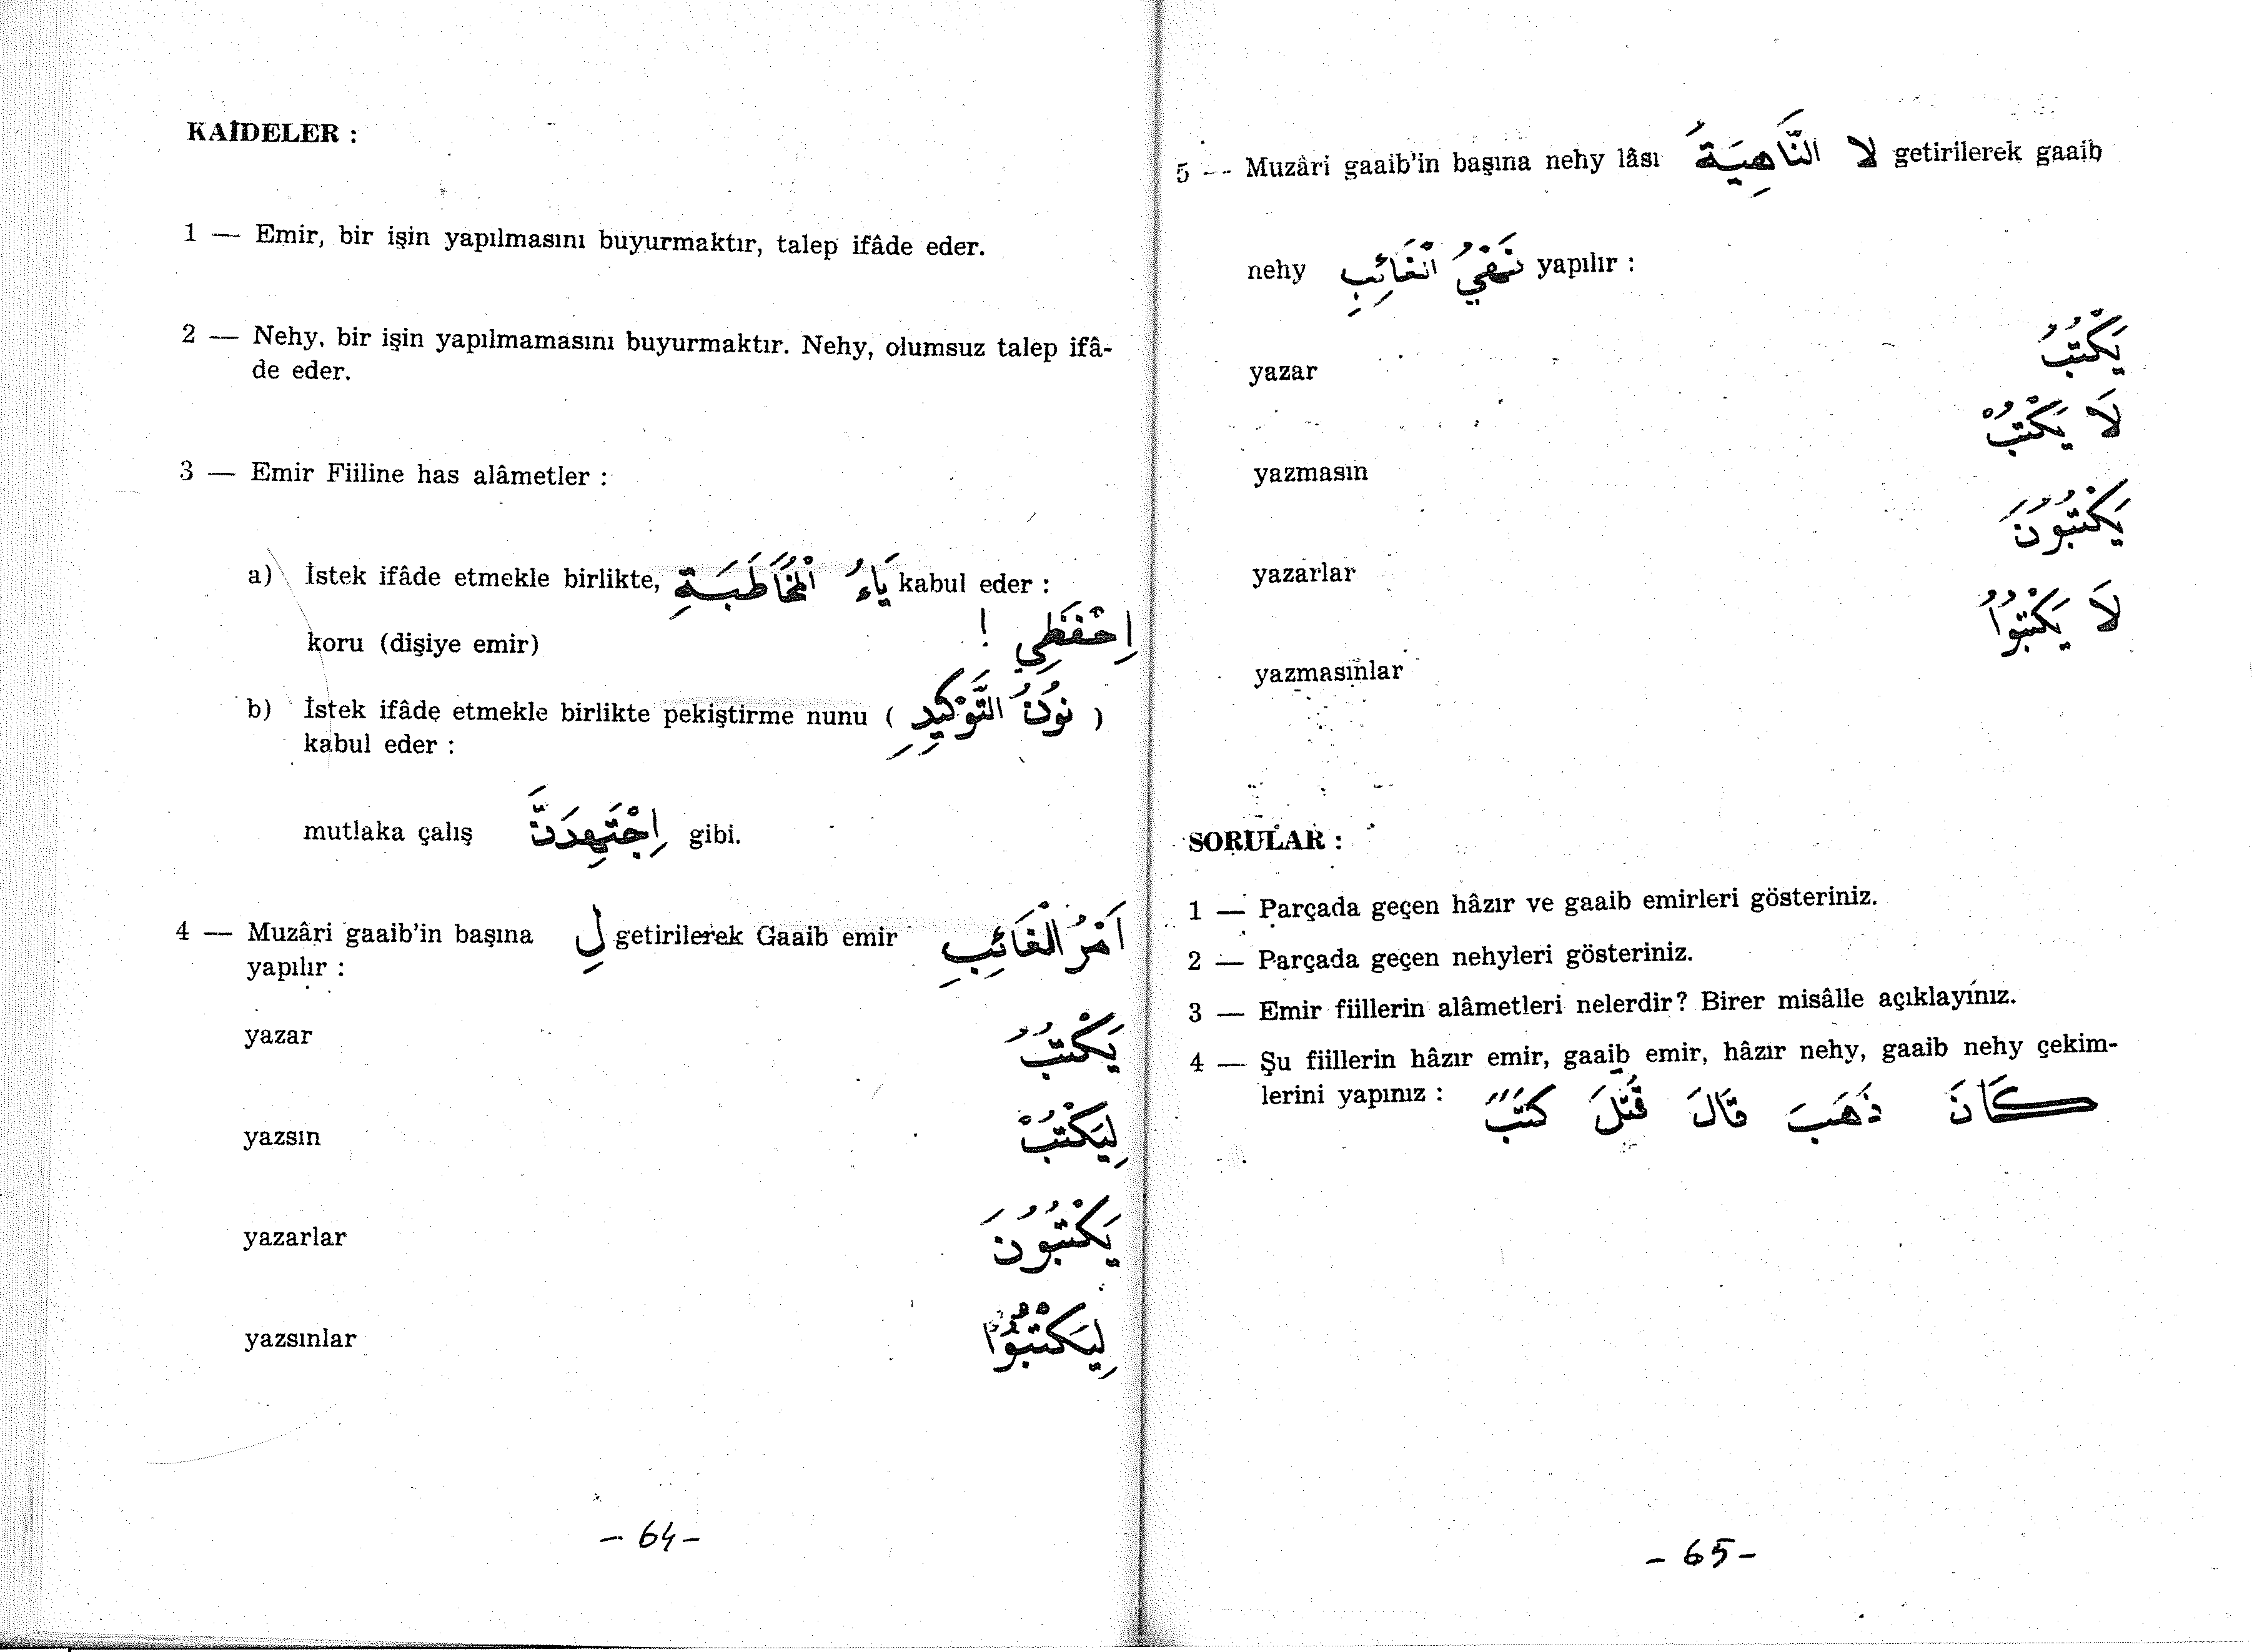 KAİDELER :
1 — Emir, bir işin yapılmasını buyurmaktır, talep ifâde eder.
2 — Nehy, bir işin yapılmamasını buyurmaktır. Nehy, olumsuz talep ifâ-
de eder.
3 — Emir Fiiline has alâmetler :
a) İstek ifâde etmekle birlikte, يَاءُ الْمُخَاطَبَةِ kabul eder :
koru (dişiye emir) اِحْفَظِي !
b) İstek ifâde etmekle birlikte pekiştirme nunu ( نُونُ التَّوْكِيدِ )
kabul eder :
mutlaka çalış اِجْتَهِدَنَّ gibi.
4 — Muzâri gaaib'in başına لِ getirilerek Gaaib emir اَمْرُ الْغَائِبِ
yapılır :
yazar يَكْتُبُ
yazsın لِيَكْتُبْ
yazarlar يَكْتُبُونَ
yazsınlar لِيَكْتُبُوا
- 64 -
5 -- Muzâri gaaib'in başına nehy lâsı لا النَّاهِيَةُ getirilerek gaaib
nehy نَهْيُ الْغَائِبِ yapılır :
yazar يَكْتُبُ
yazmasın لَا يَكْتُبْ
yazarlar يَكْتُبُونَ
yazmasınlar لَا يَكْتُبُوا
SORULAR :
1 — Parçada geçen hâzır ve gaaib emirleri gösteriniz.
2 — Parçada geçen nehyleri gösteriniz.
3 — Emir fiillerin alâmetleri nelerdir? Birer misâlle açıklayınız.
4 — Şu fiillerin hâzır emir, gaaib emir, hâzır nehy, gaaib nehy çekim-
lerini yapınız : كَانَ ذَهَبَ قَالَ قَتَلَ كَتَبَ
- 65 -